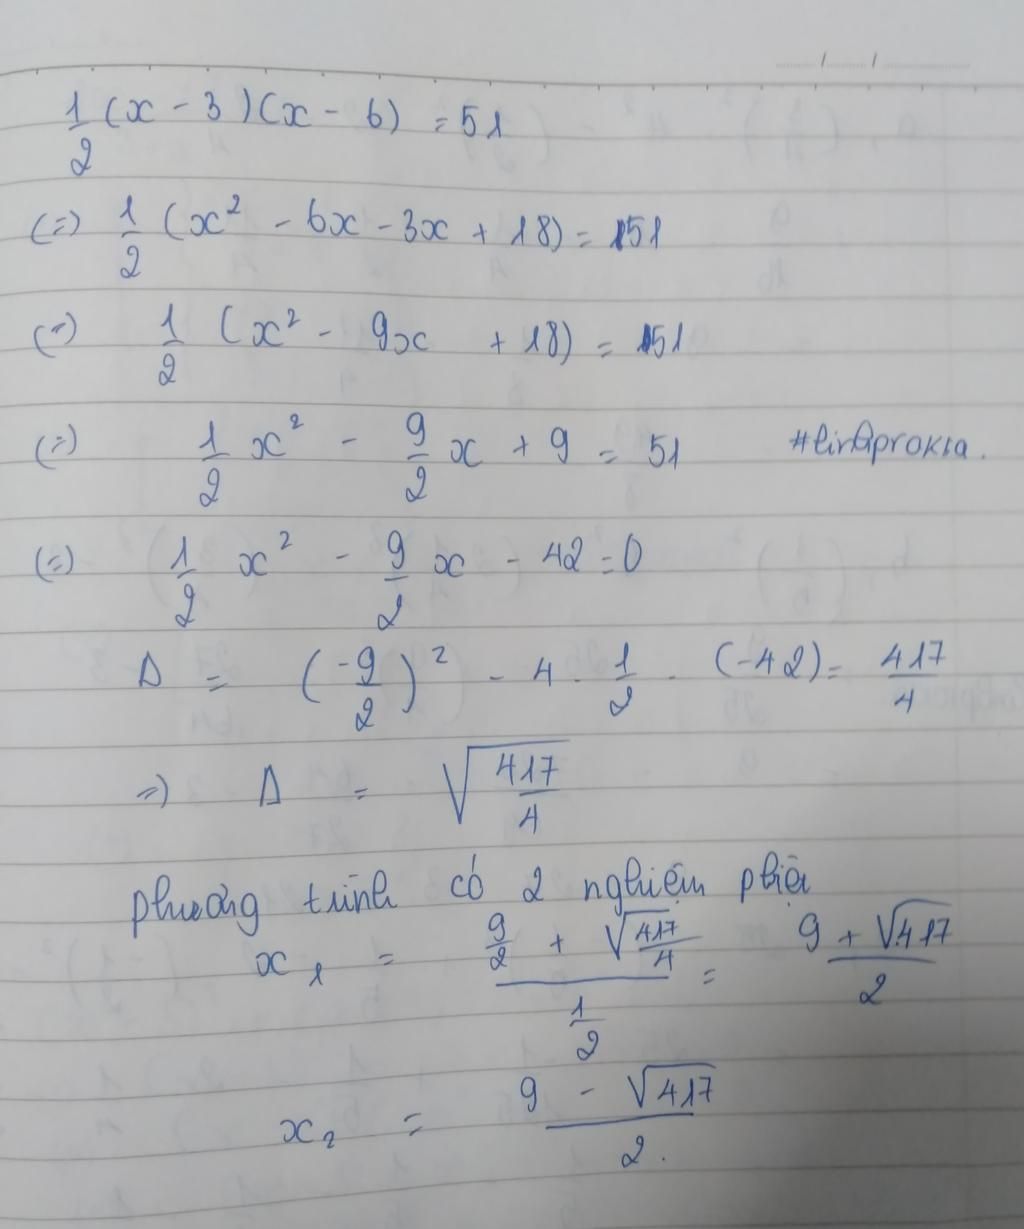 1/2 (x - 3)(x - 6) = 51
(=) 1/2 (x² - 6x - 3x + 18) = 51
(=) 1/2 (x² - 9x + 18) = 51
(=) 1/2 x² - 9/2 x + 9 = 51 #linhprokia.
(=) 1/2 x² - 9/2 x - 42 = 0
Δ = (-9/2)² - 4 . 1/2 . (-42) = 417/4
=) Δ = √(417/4)
phương trình có 2 nghiệm phân
x₁ = (9/2 + √(417/4))/(1/2) = (9 + √417)/2
x₂ = (9 - √417)/2.